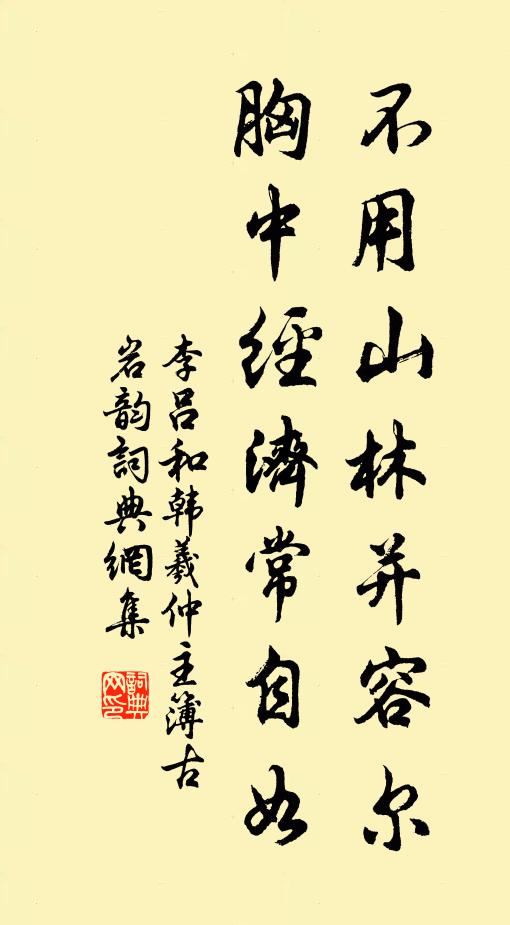 不用山林并容尔
胸中經濟常自如
李吕和韩羲仲主簿古
岩韵詞典網集
詞典网印